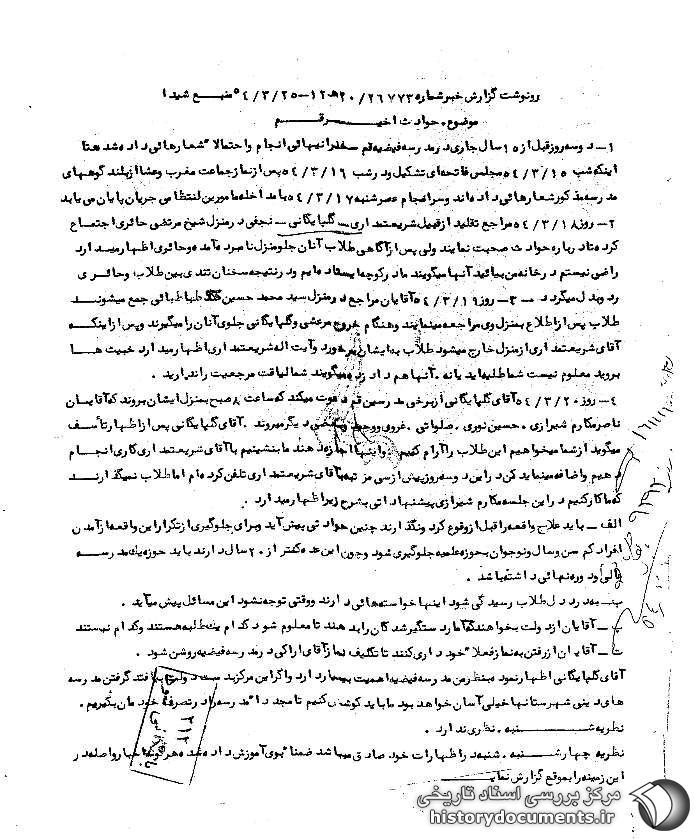 رونوشت گزارش خبر شماره ۲۶۷۷۳/ ۲۰ه۱۲ - ۵۴/۳/۲۵ منبع شیدا
موضوع. حوادث اخیر قم
۱- دو سه روز قبل از ۱۵ سال جاری در مدرسه فیضیه قم سخنرانیهائی انجام و احتمالا" شعارهائی داده شد تا
اینکه شب ۵۴/۳/۱۵ مجلس فاتحه‌ای تشکیل و در شب ۵۴/۳/۱۶ پس از نماز جماعت مغرب و عشا از بلند گوهای
مدرسه مذکور شعارهائی داده‌اند و سرانجام عصر شنبه ۵۴/۳/۱۷ با مداخله مامورین انتظامی جریان پایان می یابد
۲- روز ۵۴/۳/۱۸ مراجع تقلید از قبیل شریعتمداری - گلپایگانی - نجفی در منزل شیخ مرتضی حائری اجتماع
کرده تا درباره حوادث صحبت نمایند ولی پس از آگاهی طلاب آنان جلو منزل نامبرده آمده و حائری اظهار میدارد
راضی نیستم در خانه من بیائید آنها میگویند ما در کوچه ایستاده ایم و در نتیجه سخنان تندی بین طلاب و حائری
رد و بدل میگردد - ۳- روز ۵۴/۳/۱۹ آقایان مراجع در منزل سید محمد حسین طباطبائی جمع میشوند
طلاب پس از اطلاع بمنزل وی مراجعه مینمایند و هنگام خروج مرعشی و گلپایگانی جلوی آنان را میگیرند و پس از اینکه
آقای شریعتمداری از منزل خارج میشود طلاب به ایشان برخورد و آیت اله شریعتمداری اظهار میدارد خبیث ها
بروید معلوم نیست شما طلبه‌اید یا نه. آنها هم داد زده میگویند شما لیاقت مرجعیت را ندارید.
۴- روز ۵۴/۳/۲۰ آقای گلپایگانی از برخی مدرسین قم دعوت میکند که ساعت ۸ صبح بمنزل ایشان بروند که آقایان
ناصر مکارم شیرازی. حسین نوری. صلواتی. غروی و دیگر میروند. آقای گلپایگانی پس از اظهار تأسف
میگوید از شما میخواهیم این طلاب را آرام کنیم و اینها اجازه دهند ما بنشینیم با آقای شریعتمداری کاری انجام
دهیم و اضافه مینماید که در این دو سه روز بیش از سی مرتبه با آقای شریعتمداری تلفن کرده ام اما طلاب نمیگذارند
که ما کار کنیم در این جلسه مکارم شیرازی پیشنهاداتی بشرح زیر اظهار میدارد.
الف - باید علاج واقعه را قبل از وقوع کرد و نگذارند چنین حوادثی پیش آید و برای جلوگیری از تکرار این واقعه از آمدن
افراد کم سن و سال و نوجوان بحوزه علمیه جلوگیری شود و چون این عده کمتر از ۲۰ سال دارند باید حوزه یک مدرسه
عالی و دوره نهائی داشته باشد.
ب- به درد دل طلاب رسیدگی شود اینها خواسته‌هائی دارند و وقتی توجه نشود این مسائل پیش میآید.
پ- آقایان از دولت بخواهند که آمار دستگیر شدگان را بدهند تا معلوم شود کدام یک طلبه هستند و کدام نیستند
ت- آقایان از رفتن به نماز فعلا" خودداری کنند تا تکلیف نماز آقای اراکی در مدرسه فیضیه روشن شود.
آقای گلپایگانی اظهار نمود بنظر من مدرسه فیضیه اهمیت بیسما دارد و اگر این مرکز بدست دولت بیافتد گرفتن مدرسه
های دینی شهرستانها خیلی آسان خواهد بود ما باید کوشش کنیم تا مجددا" مدرسه را در تصرف خودمان بگیریم.
نظریه شنبه. نظری ندارد.
نظریه چهارشنبه. شنبه در اظهارات خود صادق میباشد ضمنا" بوی آموزش داده شده هرگونه اخبار واصله در
این زمینه را بموقع گزارش نماید
۲۱۲
۹۳۹۲
مرکز بررسی اسناد تاریخی
historydocuments.ir